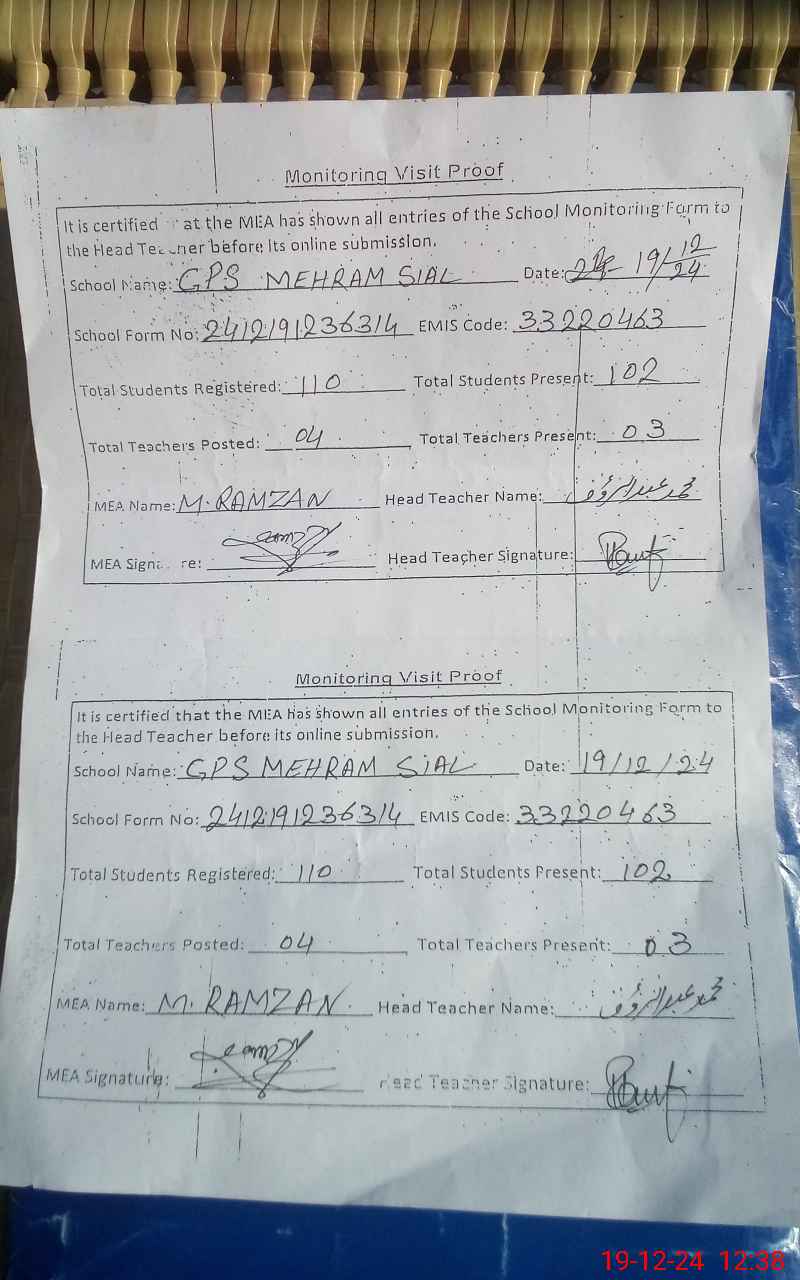 Monitoring Visit Proof
It is certified at the MEA has shown all entries of the School Monitoring Form to
the Head Teacher before its online submission.
School Name: GPS MEHRAM SIAL Date: 19/12/24
School Form No: 2412191236314 EMIS Code: 33220463
Total Students Registered: 110 Total Students Present: 102
Total Teachers Posted: 04 Total Teachers Present: 03
MEA Name: M. RAMZAN Head Teacher Name: محمد عبدالرؤف
MEA Signa re: Head Teacher Signature: Rauf
Monitoring Visit Proof
It is certified that the MEA has shown all entries of the School Monitoring Form to
the Head Teacher before its online submission.
School Name: GPS MEHRAM SIAL Date: 19/12/24
School Form No: 2412191236314 EMIS Code: 33220463
Total Students Registered: 110 Total Students Present: 102
Total Teachers Posted: 04 Total Teachers Present: 03
MEA Name: M. RAMZAN Head Teacher Name: محمد عبدالرؤف
MEA Signature: Head Teacher Signature: Rauf
19-12-24 12:38